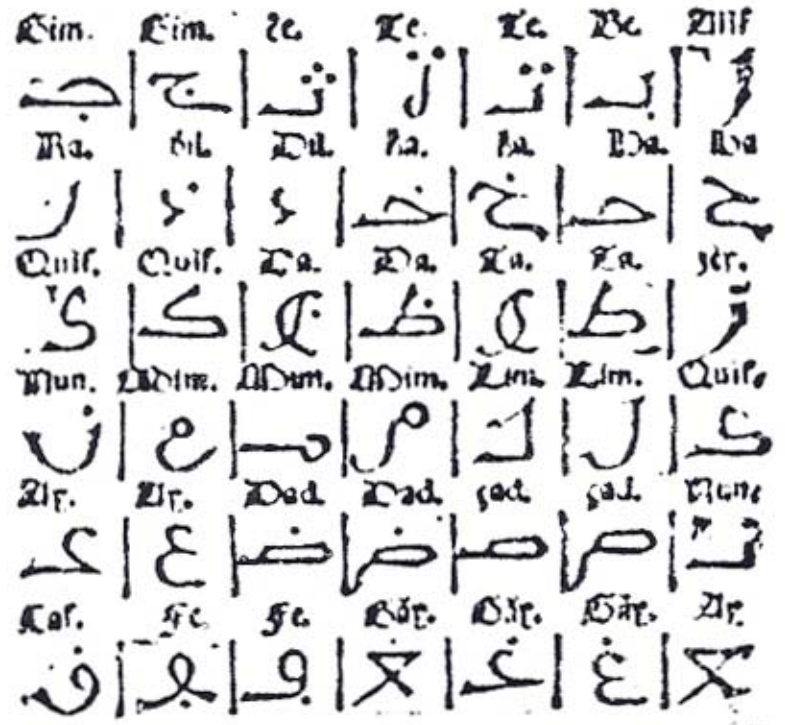 Gim. Gim. Te. Te. Be. Alif
جـ ج ثـ ث تـ بـ أ
Ra. Dil. Dil. ha. ha. Ha. Ha
ر ذ د خـ خ حـ ح
Quif. Quif. Da. Da. Ta. Ta.
ك ك ظ ظ ط ط ز
Nun. Mim. Mim. Mim. Lim. Lim. Quif.
ن م مـ م لـ ل كـ
Ay. Ay. Dad. Dad. çad. çad. Nun.
عـ ع ضـ ض صـ ص نـ
Caf. Fe. Fe. Gay. Gay. Gay. Ay.
ق ـفـ ف ـغـ غـ غ ـعـ